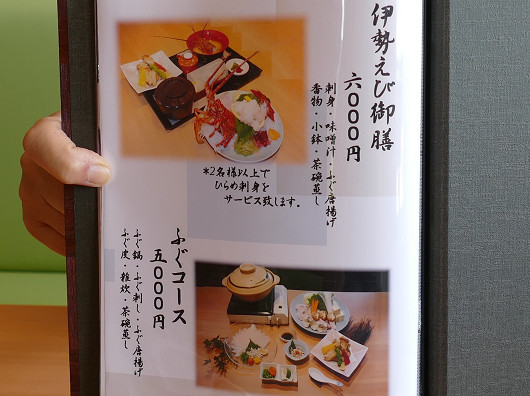 伊勢えび御膳
六〇〇〇円
刺身・味噌汁・ふぐ唐揚げ
香物・小鉢・茶碗蒸し
*2名様以上で
ひらめ刺身を
サービス致します。
ふぐコース
五〇〇〇円
ふぐ鍋・ふぐ刺し・ふぐ唐揚げ
ふぐ皮・雑炊・茶碗蒸し